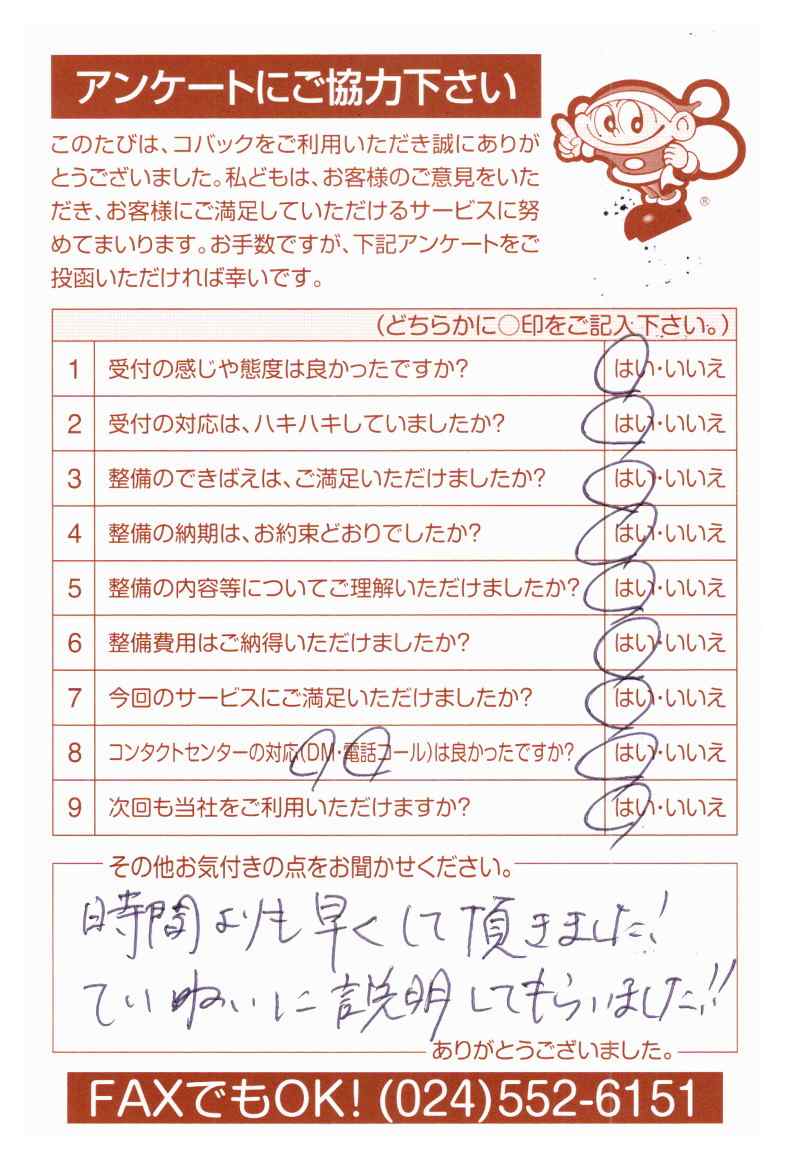 アンケートにご協力下さい
このたびは、コバックをご利用いただき誠にありが
とうございました。私どもは、お客様のご意見をいた
だき、お客様にご満足していただけるサービスに努
めてまいります。お手数ですが、下記アンケートをご
投函いただければ幸いです。
®
(どちらかに○印をご記入下さい。)
1 受付の感じや態度は良かったですか? はい・いいえ
2 受付の対応は、ハキハキしていましたか? はい・いいえ
3 整備のできばえは、ご満足いただけましたか? はい・いいえ
4 整備の納期は、お約束どおりでしたか? はい・いいえ
5 整備の内容等についてご理解いただけましたか? はい・いいえ
6 整備費用はご納得いただけましたか? はい・いいえ
7 今回のサービスにご満足いただけましたか? はい・いいえ
8 コンタクトセンターの対応(DM・電話コール)は良かったですか? はい・いいえ
9 次回も当社をご利用いただけますか? はい・いいえ
その他お気付きの点をお聞かせください。
時間よりも早くして頂きました!
ていねいに説明してもらいました!!
ありがとうございました。
FAXでもOK! (024)552-6151